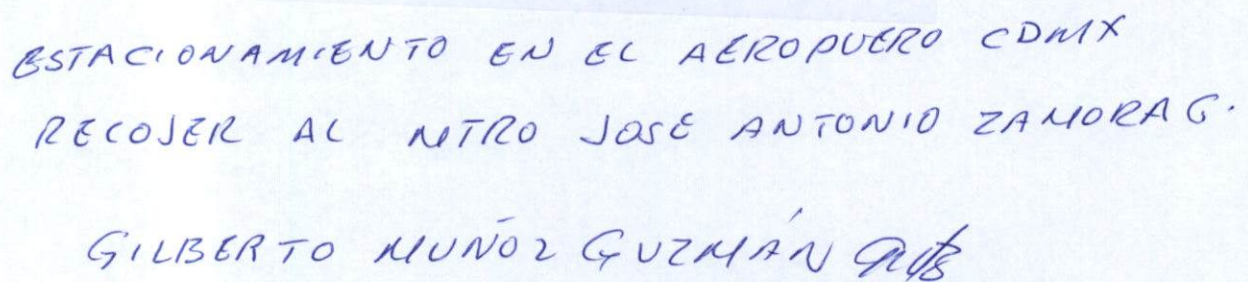 ESTACIONAMIENTO EN EL AEROPUERO CDMX
RECOJER AL MTRO JOSÉ ANTONIO ZAMORA G.
GILBERTO MUÑOZ GUZMÁN